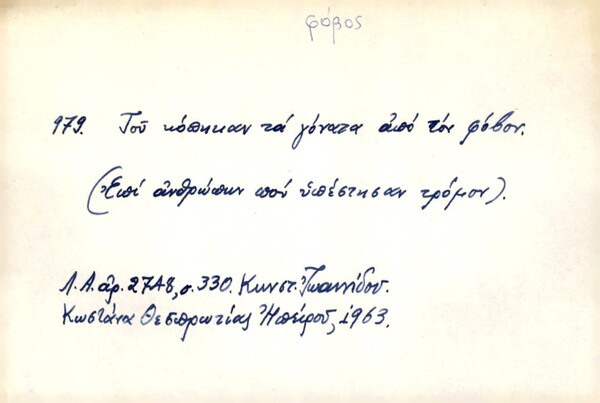 φόβος
979. Τοῦ κόπηκαν τά γόνατα ἀπό τόν φόβον.
(Ἐπί ἀνθρώπων πού ὑπέστησαν τρόμον).
Λ.Α. ἀρ. 2748, σ. 330. Κωνστ. Ἰωαννίδου.
Κωστάνα Θεσπρωτίας Ἠπείρου, 1963.